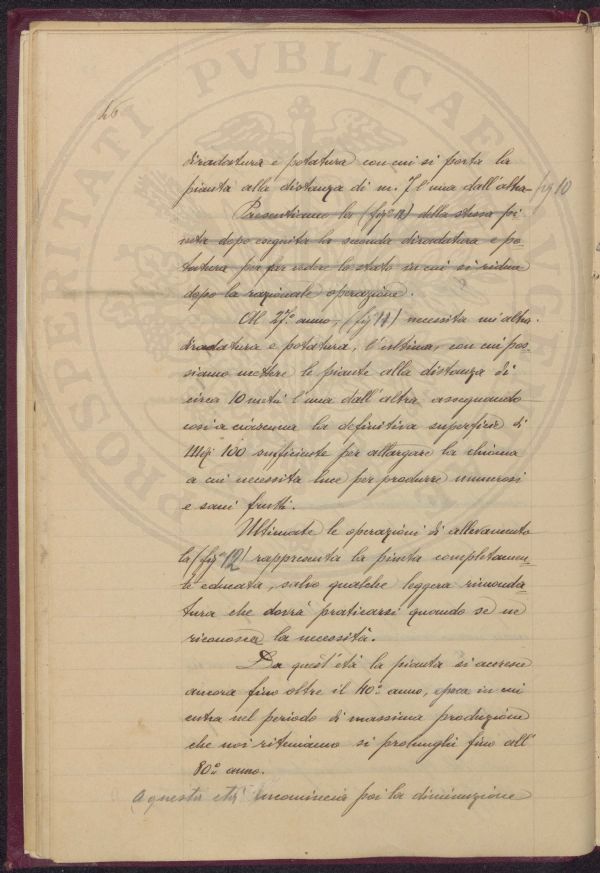 46
PROSPERITATI PVBLICAE AVGENDAE
diradatura e potatura con cui si porta la
pianta alla distanza di m. 7 l'una dall'altra - fig 10
Presentiamo la (fig.ª 12) della stessa pi
neta dopo eseguita la seconda diradatura e po-
tatura per far vedere lo stato in cui si riduce
dopo la razionale operazione.
Al 27.º anno, (fig 11) necessita un'altra
diradatura e potatura, l'ultima, con cui pos-
siamo mettere le piante alla distanza di
circa 10 metri l'una dall'altra assegnando
così a ciascuna la definitiva superficie di
Mq. 100 sufficiente per allargare la chioma
a cui necessita luce per produrre numerosi
e sani frutti.
Ultimate le operazioni di allevamento
la (fig.ª 12) rappresenta la pineta completamen-
te educata, salvo qualche leggera rimonda-
tura che dovrà praticarsi quando se ne
riconosca la necessità.
Da quest'età la pianta si accresce
ancora fino oltre il 40.º anno, epoca in cui
entra nel periodo di massima produzione
che noi riteniamo si prolunghi fino all'
80.º anno.
A questa età incomincia poi la diminuzione